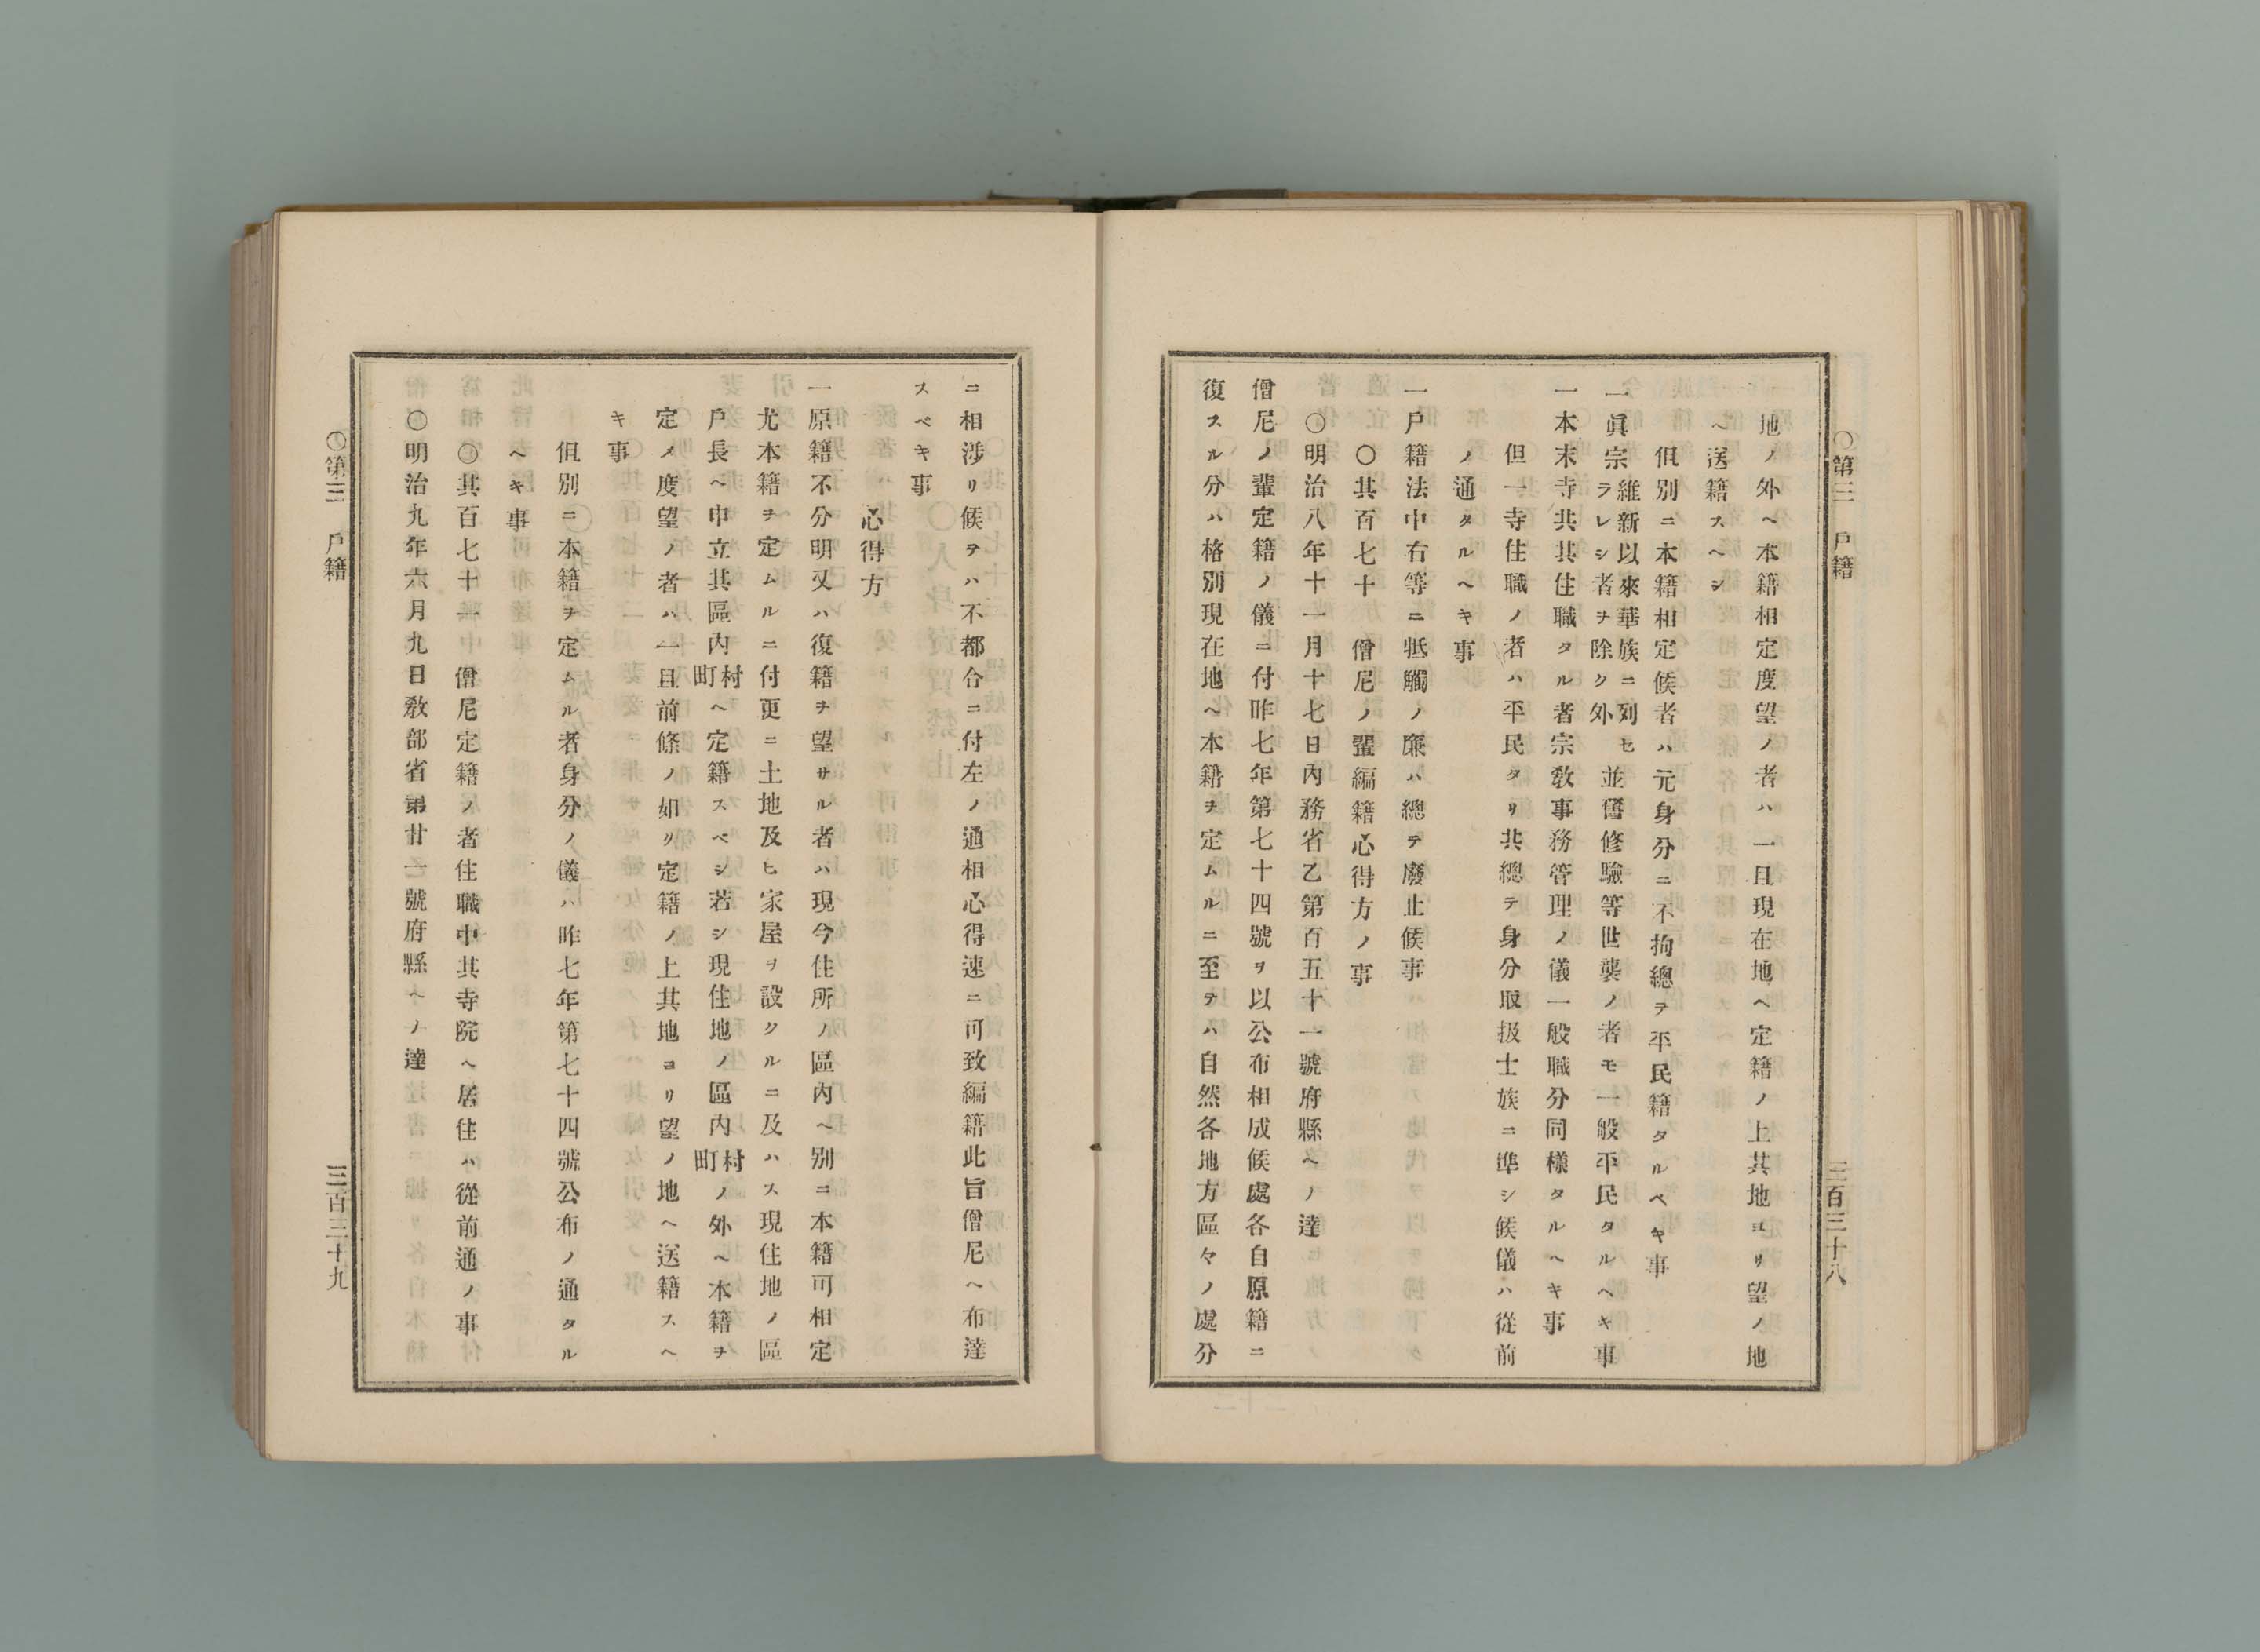 〇第三 戶籍
三百三十八
地ノ外ヘ本籍相定度望ノ者ハ一旦現在地ヘ定籍ノ上其地ヨリ望ノ地
ヘ送籍スヘシ
但別ニ本籍相定候者ハ元身分ニ不拘總テ平民籍タルベキ事
一眞宗維新以來華族ニ列セラレシ者ヲ除ク外並舊修驗等世襲ノ者モ一般平民タルヘキ事
一本末寺共其住職タル者宗敎事務管理ノ儀一般職分同樣タルヘキ事
但一寺住職ノ者ハ平民タリ共總テ身分取扱士族ニ準シ候儀ハ從前
ノ通タルヘキ事
一戶籍法中右等ニ牴觸ノ廉ハ總テ廢止候事
〇其百七十 僧尼ノ輩編籍心得方ノ事
〇明治八年十一月十七日內務省乙第百五十一號府縣ヘノ達
僧尼ノ輩定籍ノ儀ニ付昨七年第七十四號ヲ以公布相成候處各自原籍ニ
復スル分ハ格別現在地ヘ本籍ヲ定ムルニ至テハ自然各地方區々ノ處分
ニ相涉リ候テハ不都合ニ付左ノ通相心得速ニ可致編籍此旨僧尼ヘ布達
スベキ事
心得方
一原籍不分明又ハ復籍ヲ望サル者ハ現今住所ノ區內ヘ別ニ本籍可相定
尤本籍ヲ定ムルニ付更ニ土地及ヒ家屋ヲ設クルニ及ハス現住地ノ區
戶長ヘ申立其區內村町ヘ定籍スベシ若シ現住地ノ區內村町ノ外ヘ本籍ヲ
定メ度望ノ者ハ一旦前條ノ如ク定籍ノ上其地ヨリ望ノ地ヘ送籍スヘ
キ事
但別ニ本籍ヲ定ムル者身分ノ儀ハ昨七年第七十四號公布ノ通タル
ヘキ事
〇其百七十一 僧尼定籍ノ者住職中其寺院ヘ居住ハ從前通ノ事
〇明治九年六月九日敎部省第廿一號府縣ヘノ達
〇第三 戶籍
三百三十九